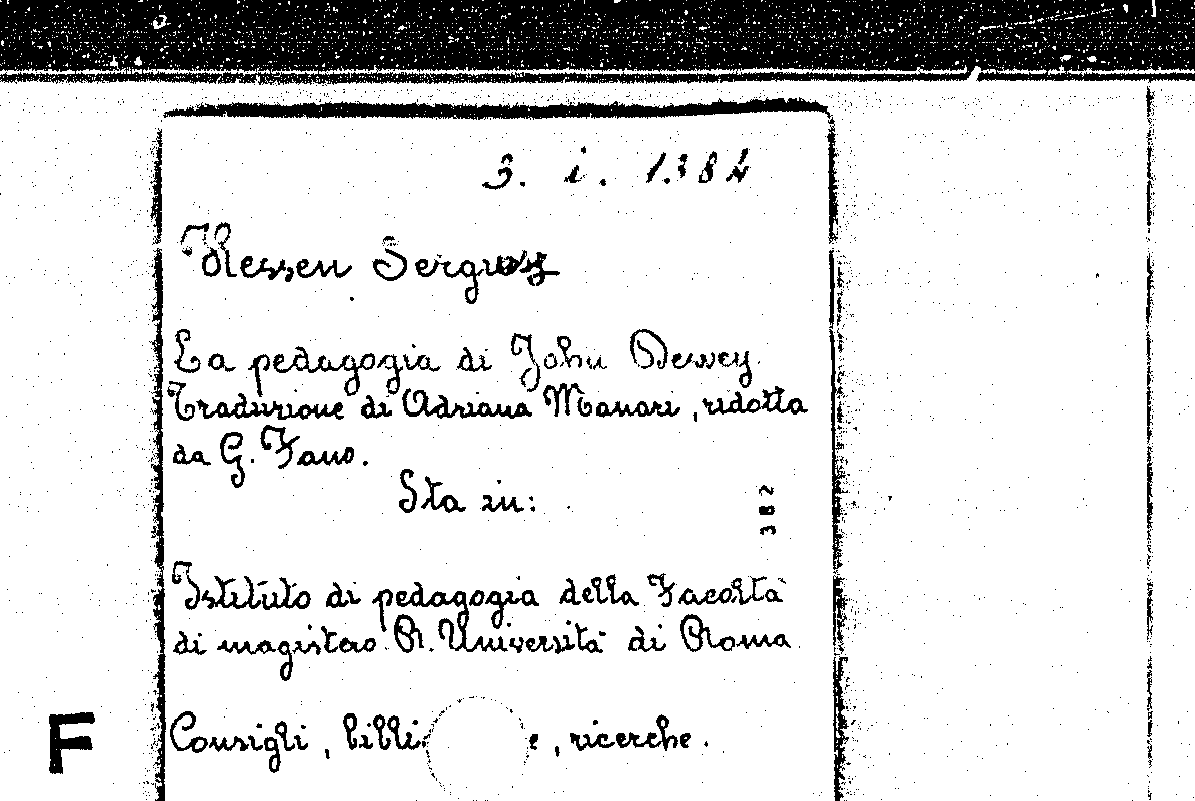 3. i. 1384
Hessen Sergius
La pedagogia di John Dewey
Traduzione di Adriana Manari, ridotta
da G. Fano.
Sta in:
382
Istituto di pedagogia della Facoltà
di magistero R. Università di Roma
Consigli, bibli e, ricerche.
F